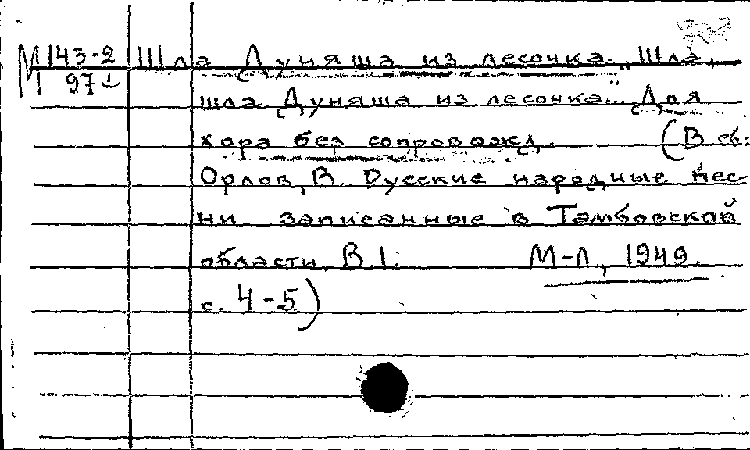 М 143-2 Шла Дуняша из лесочка. "Шла,
971 шла Дуняша из лесочка..." Для
хора без сопровожд. (В сб:
Орлов, В. Русские народные пес-
ни записанные в Тамбовской
области, В 1. М-Л, 1949.
с. 4-5)